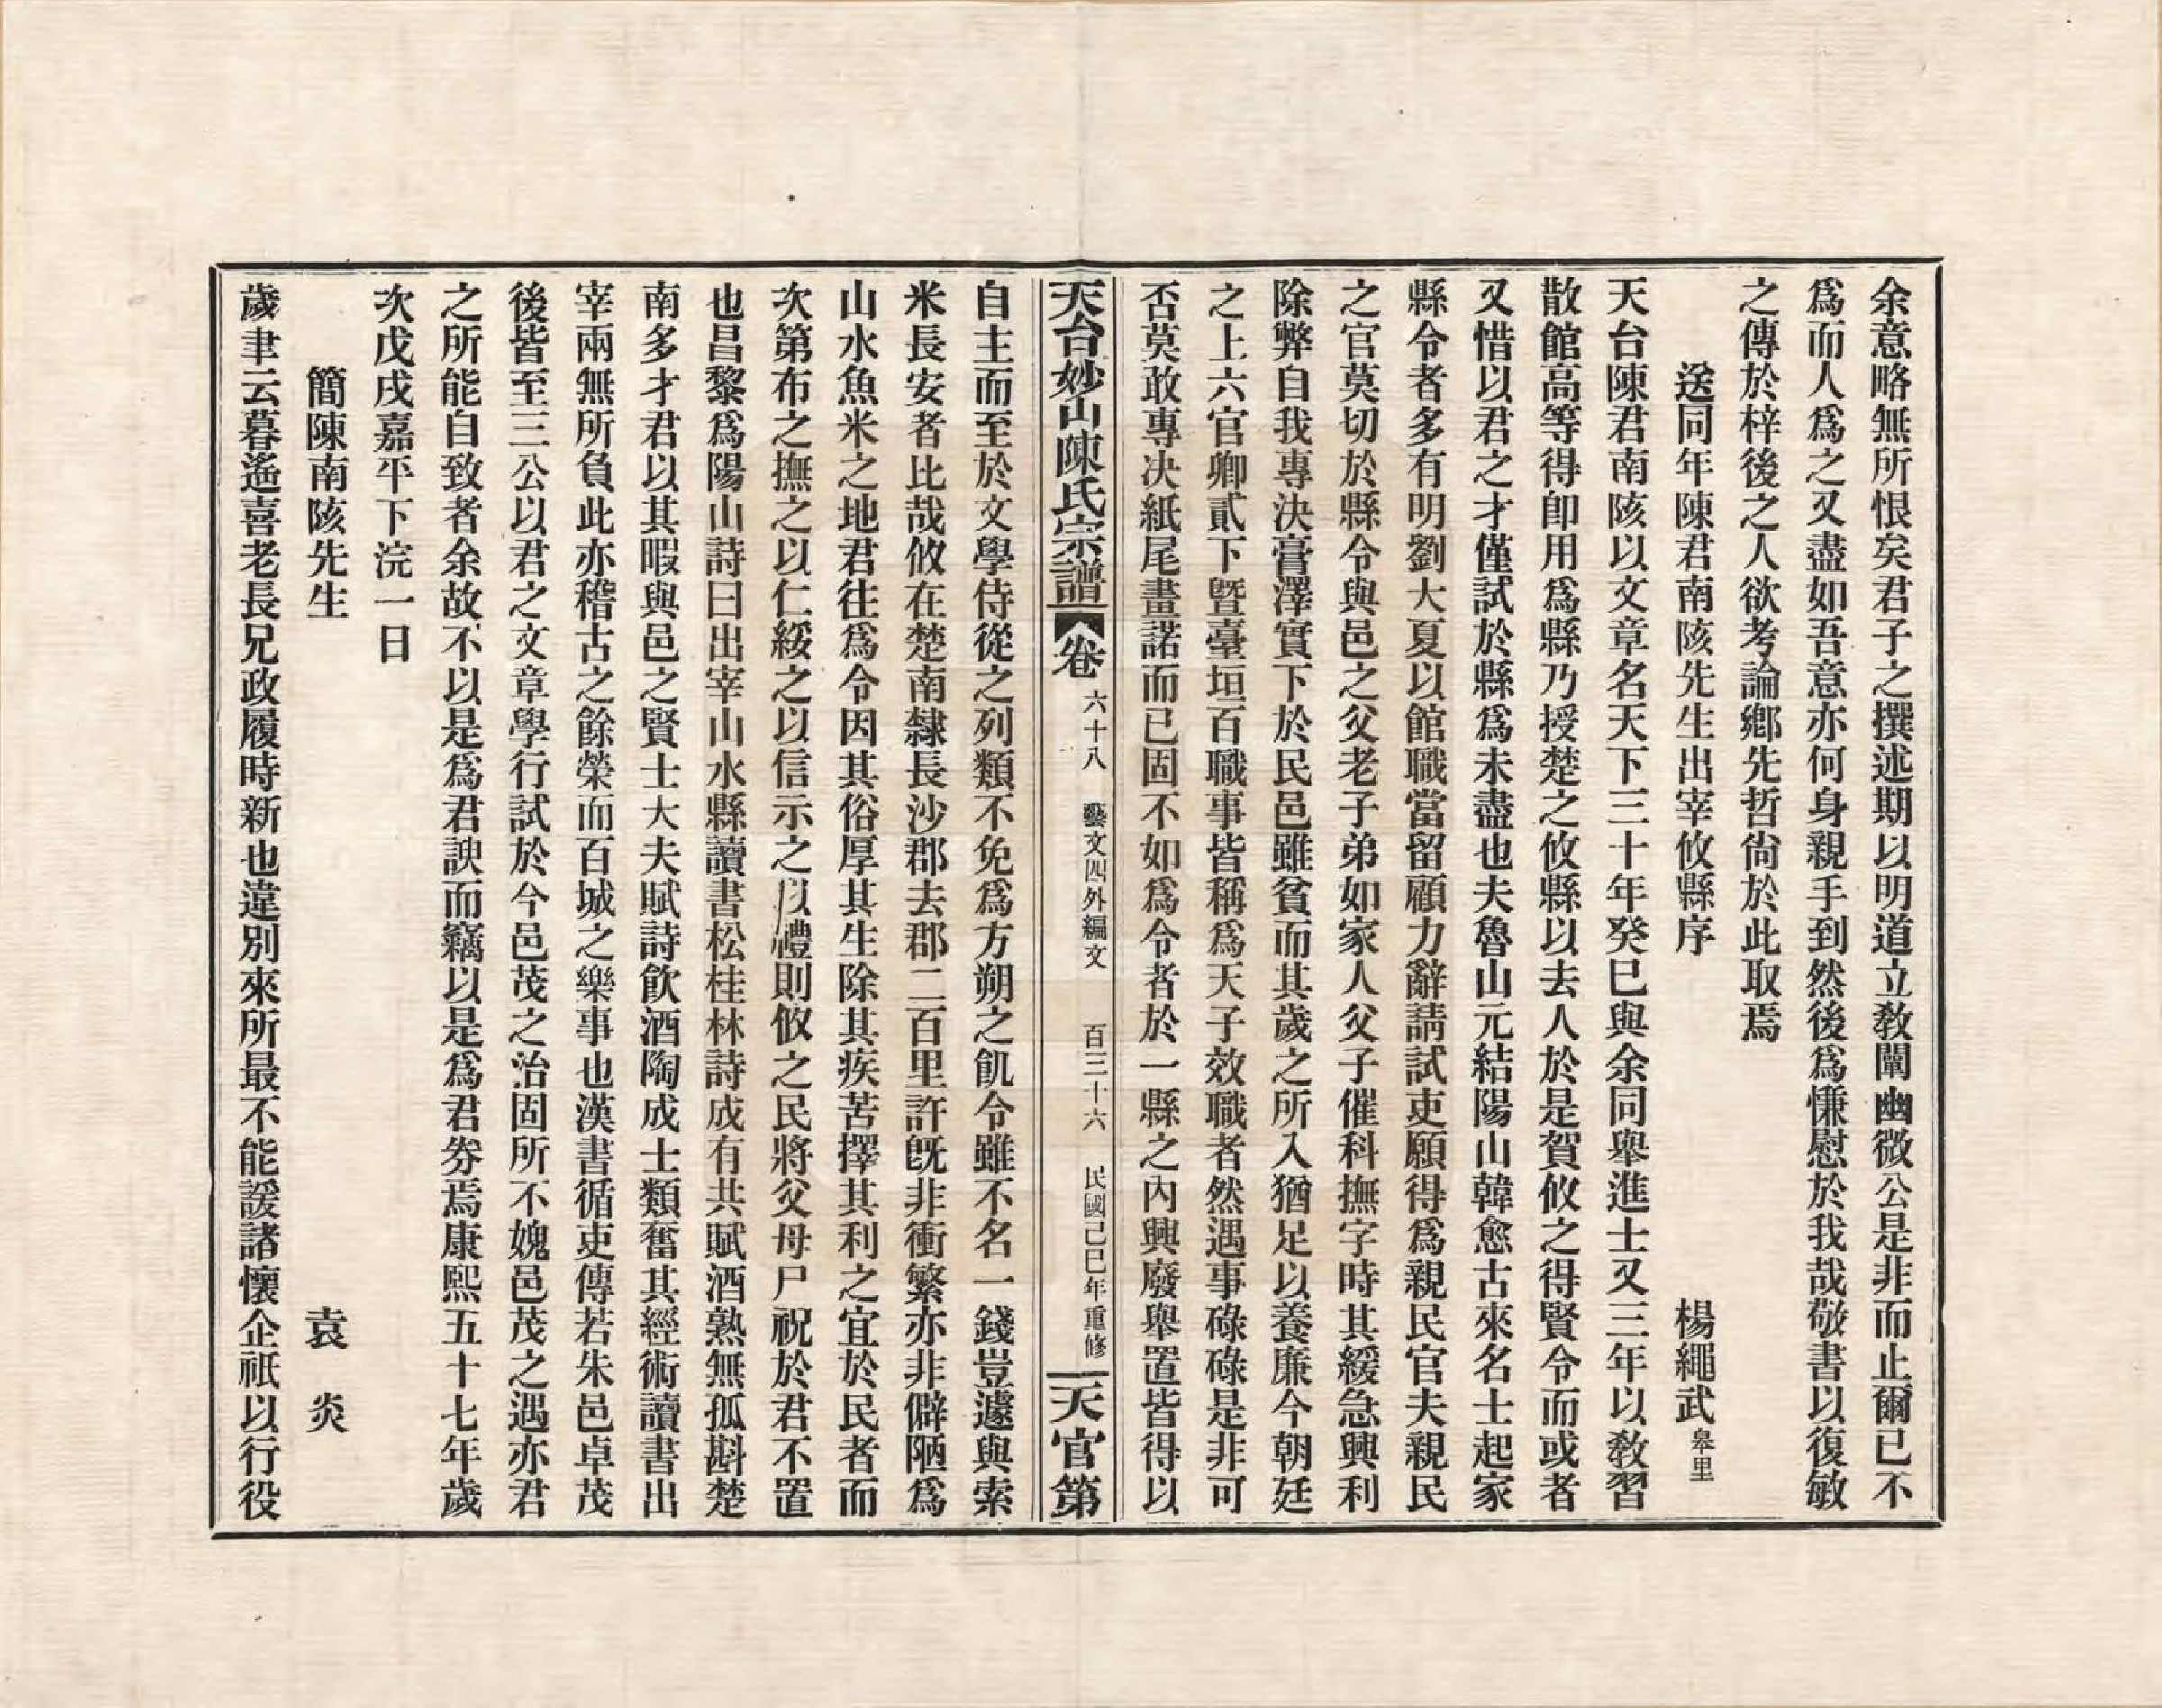 余意略無所恨矣君子之撰述期以明道立敎闡幽微公是非而止爾已不
爲而人爲之又盡如吾意亦何身親手到然後爲慊慰於我哉敬書以復敏
之傳於梓後之人欲考論鄕先哲尙於此取焉
送同年陳君南陔先生出宰攸縣序 楊繩武皋里
天台陳君南陔以文章名天下三十年癸巳與余同舉進士又三年以敎習
散館高等得卽用爲縣乃授楚之攸縣以去人於是賀攸之得賢令而或者
又惜以君之才僅試於縣爲未盡也夫魯山元結陽山韓愈古來名士起家
縣令者多有明劉大夏以館職當留顧力辭請試吏願得爲親民官夫親民
之官莫切於縣令與邑之父老子弟如家人父子催科撫字時其緩急興利
除弊自我專決膏澤實下於民邑雖貧而其歲之所入猶足以養廉今朝廷
之上六官卿貳下曁臺垣百職事皆稱爲天子效職者然遇事碌碌是非可
否莫敢專決紙尾畫諾而已固不如爲令者於一縣之內興廢舉置皆得以
天台妙山陳氏宗譜 卷 六十八 藝文四外編文 百三十六 民國己巳年重修 天官第
自主而至於文學侍從之列類不免爲方朔之飢令雖不名一錢豈遽與索
米長安者比哉攸在楚南隸長沙郡去郡二百里許旣非衝繁亦非僻陋爲
山水魚米之地君往爲令因其俗厚其生除其疾苦擇其利之宜於民者而
次第布之撫之以仁綏之以信示之以禮則攸之民將父母尸祝於君不置
也昌黎爲陽山詩曰出宰山水縣讀書松桂林詩成有共賦酒熟無孤斟楚
南多才君以其暇與邑之賢士大夫賦詩飮酒陶成士類奮其經術讀書出
宰兩無所負此亦稽古之餘榮而百城之樂事也漢書循吏傳若朱邑卓茂
後皆至三公以君之文章學行試於今邑茂之治固所不媿邑茂之遇亦君
之所能自致者余故不以是爲君諛而竊以是爲君券焉康熙五十七年歲
次戊戌嘉平下浣一日
簡陳南陔先生 袁炎
歲聿云暮遙喜老長兄政履時新也違別來所最不能諼諸懷企祇以行役